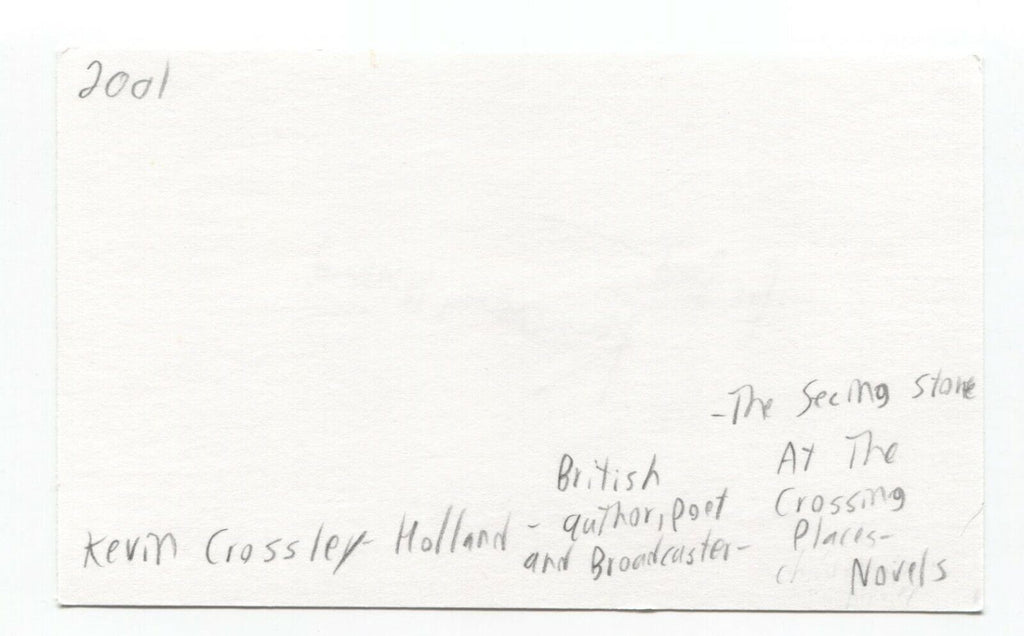 2001
-The Seeing Stone
At The
Crossing
Places-
Novels
British
author, poet
and Broadcaster-
Kevin Crossley-Holland -